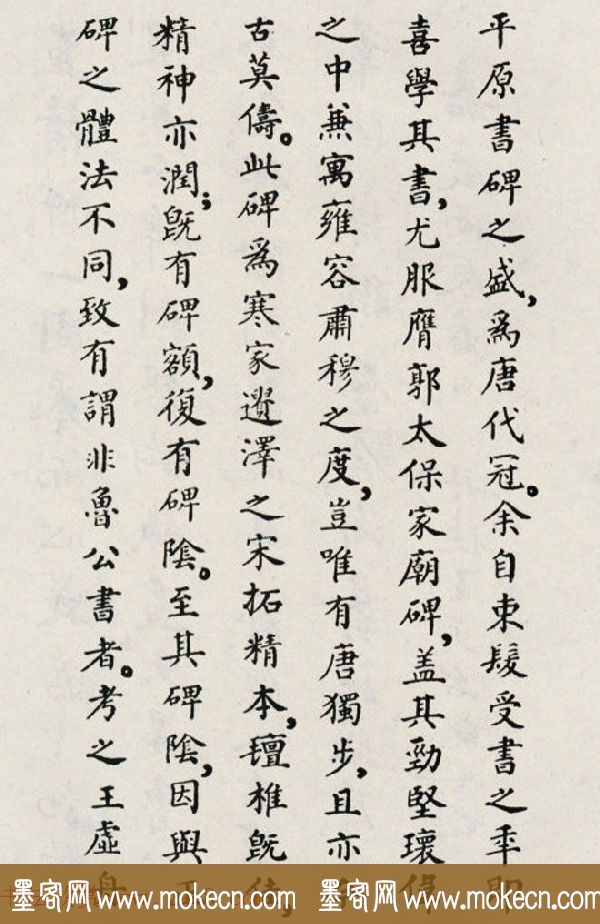 平原書碑之盛，爲唐代冠。余自束髮受書之年即
喜學其書，尤服膺郭太保家廟碑，盖其勁堅瓌
之中兼寓雍容肅穆之度，豈唯有唐獨步，且亦
古莫儔。此碑爲寒家遺澤之宋拓精本，氊椎旣佳，
精神亦潤；旣有碑額，復有碑陰。至其碑陰，因與正
碑之體法不同，致有謂非魯公書者。考之王虛舟
墨客网 www.mokecn.com 墨客网 www.mokecn.com